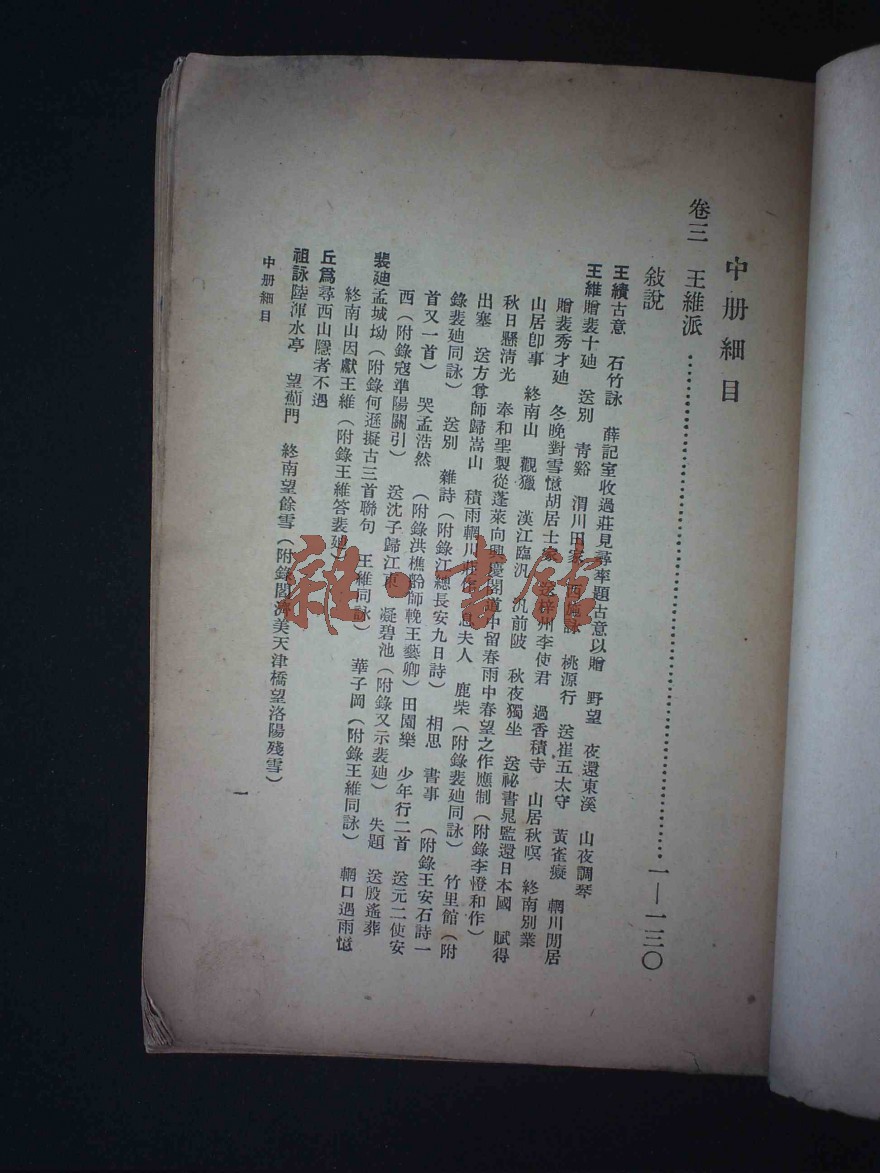 中册細目
卷三　王維派……………………一—一三〇
敍說
王績古意　石竹詠　薛記室收過莊見尋率題古意以贈　野望　夜還東溪　山夜調琴
王維贈裴十廸　送別　靑谿　渭川田家　西施詠　桃源行　送崔五太守　黃雀癡　輞川閒居
贈裴秀才廸　冬晚對雪憶胡居士家　送梓州李使君　過香積寺　山居秋暝　終南別業
山居卽事　終南山　觀獵　漢江臨汎　汎前陂　秋夜獨坐　送祕書晁監還日本國　賦得
秋日懸淸光　奉和聖製從蓬萊向興慶閣道中留春雨中春望之作應制（附錄李憕和作）
出塞　送方尊師歸嵩山　積雨輞川莊作　息夫人　鹿柴（附錄裴廸同詠）　竹里館（附
錄裴廸同詠）　送別　雜詩（附錄江總長安九日詩）　相思　書事　（附錄王安石詩一
首又一首）　哭孟浩然　（附錄洪樵舲師輓王藝卿）田園樂　少年行二首　送元二使安
西（附錄寇準陽關引）　送沈子歸江東　凝碧池（附錄又示裴廸）　失題　送殷遙葬
裴廸孟城坳（附錄何遜擬古三首聯句　王維同詠）　華子岡（附錄王維同詠）　輞口遇雨憶
終南山因獻王維（附錄王維答裴廸）
丘爲尋西山隱者不遇
祖詠陸渾水亭　望薊門　終南望餘雪（附錄閻濟美天津橋望洛陽殘雪）
中册細目
一
雜·書館